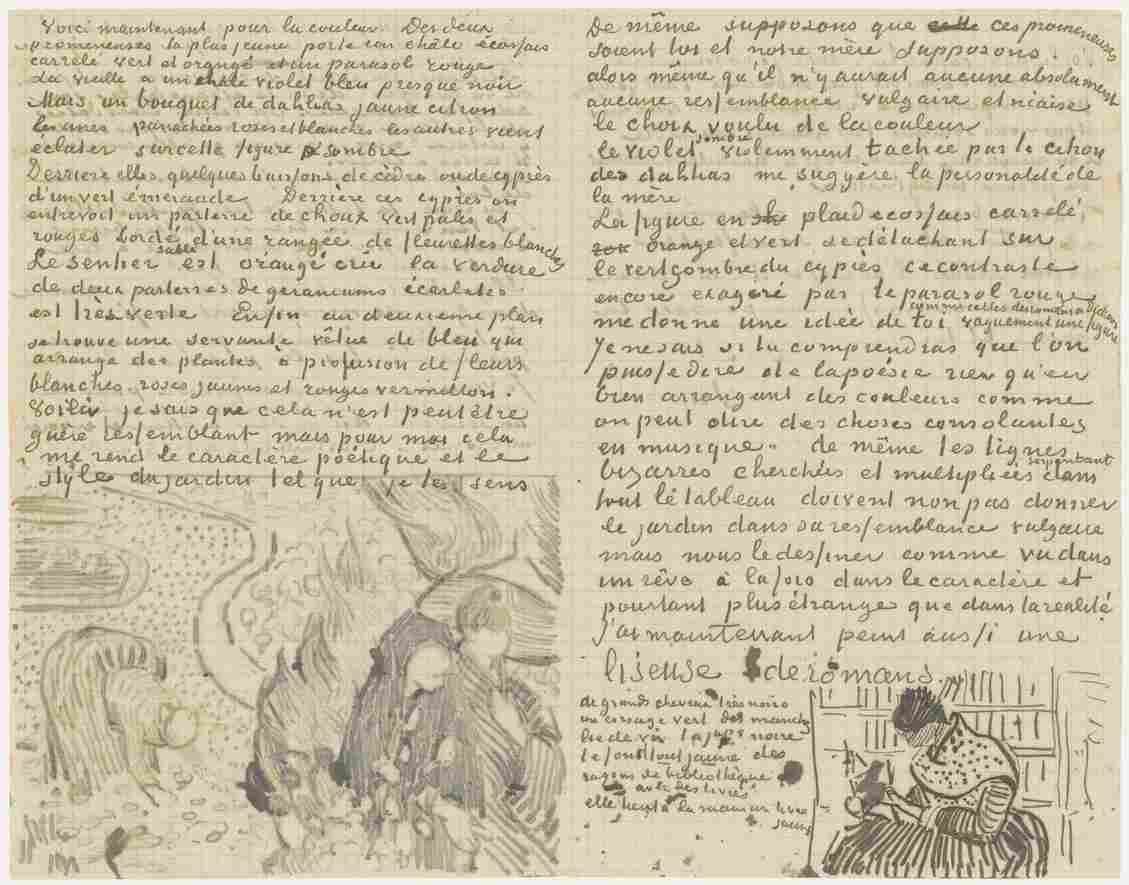 Voici maintenant pour la couleur Des deux
promeneuses la plus jeune porte un châle écossais
carrelé vert et orangé et un parasol rouge
La vieille a un châle violet bleu presque noir
Mais un bouquet de dahlias jaune citron
les unes panachées roses et blanches les autres vient
éclater sur cette figure sombre
Derrière elles quelques buissons de cèdre ou de cyprès
d'un vert émeraude Derrière ces cyprès on
entrevoit un parterre de choux vert pâles et
rouges bordé d'une rangée de fleurettes blanches
sablé
Le sentier est orangé cru la verdure
de deux parterres de geraniums écarlates
est très verte Enfin au deuxieme plan
se trouve une servante vêtue de bleu qui
arrange des plantes à profusion de fleurs
blanches, roses, jaunes et rouges vermillon.
Voilà je sais que cela n'est peut être
guère ressemblant mais pour moi cela
me rend le caractère poétique et le
style du jardin tel que je les sens
De même supposons que ces promeneuses
soient toi et notre mère supposons.
alors même qu'il n'y aurait aucune absolument
aucune ressemblance vulgaire et niaise
le choix voulu de la couleur
sombre
le violet violemment tachée par le citron
des dahlias me suggère la personalité de
la mère
La figure en plaid ecossais carrelé
orange et vert se détachant sur
le vert sombre du cyprès ce contraste
encore exagéré par le parasol rouge
comme celles des romans Dickens
me donne une idée de toi vaguement une figure
Je ne sais si tu comprendras que l'on
puisse dire de la poésie rien qu'en
bien arrangeant des couleurs comme
on peut dire des choses consolantes
en musique. de même les lignes
serpentant
bizarres cherchées et multipliées dans
tout le tableau doivent non pas donner
le jardin dans sa ressemblance vulgaire
mais nous le dessiner comme vu dans
un rêve à la fois dans le caractère et
pourtant plus étrange que dans la realité
J'ai maintenant peint aussi une
liseuse de romans.
de grands cheveux très noirs
un corsage vert des manches
lie de vin la jupe noire
le fond tout jaune des
rayons de bibliothèque
avec des livres
elle tient à la main un livre
jaune